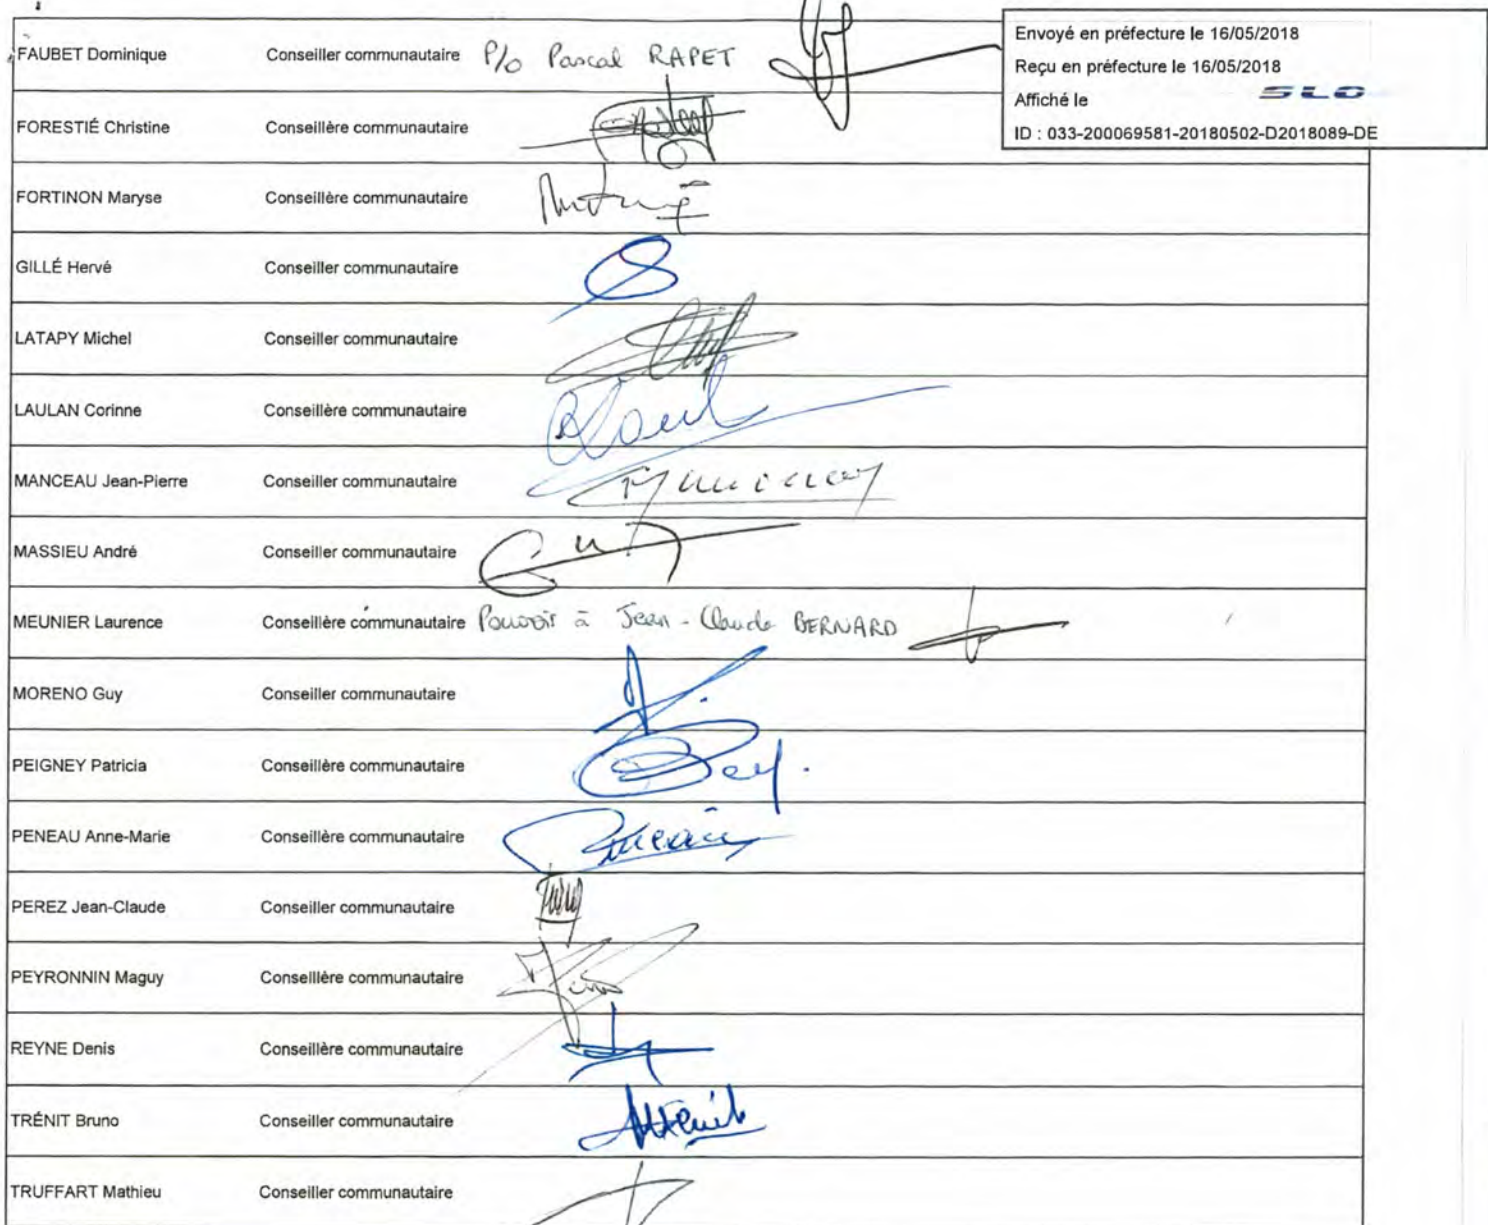 FAUBET Dominique Conseiller communautaire P/o Pascal RAPET
Envoyé en préfecture le 16/05/2018
Reçu en préfecture le 16/05/2018
Affiché le SLO
ID : 033-200069581-20180502-D2018089-DE
FORESTIÉ Christine Conseillère communautaire
FORTINON Maryse Conseillère communautaire
GILLÉ Hervé Conseiller communautaire
LATAPY Michel Conseiller communautaire
LAULAN Corinne Conseillère communautaire
MANCEAU Jean-Pierre Conseiller communautaire
MASSIEU André Conseiller communautaire
MEUNIER Laurence Conseillère communautaire Pouvoir à Jean-Claude BERNARD
MORENO Guy Conseiller communautaire
PEIGNEY Patricia Conseillère communautaire
PENEAU Anne-Marie Conseillère communautaire
PEREZ Jean-Claude Conseiller communautaire
PEYRONNIN Maguy Conseillère communautaire
REYNE Denis Conseillère communautaire
TRÉNIT Bruno Conseiller communautaire
TRUFFART Mathieu Conseiller communautaire